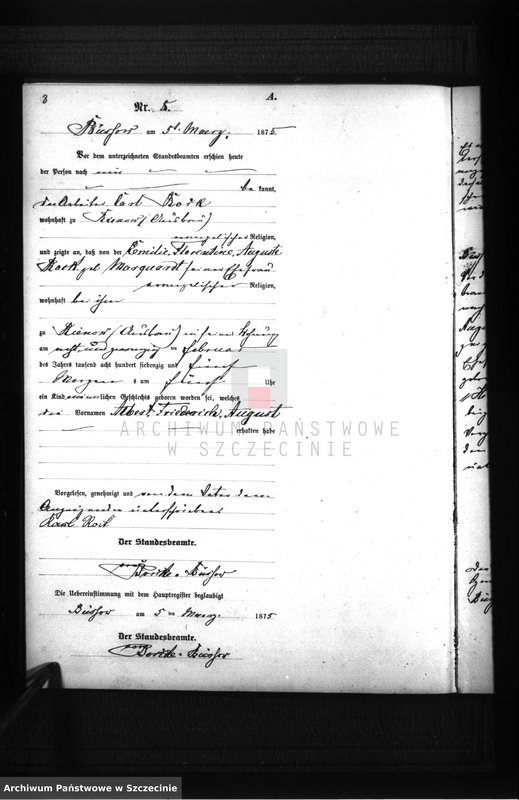 8
A.
Nr. 5.
Büssow am 5t. Maerz. 1875
Vor dem unterzeichneten Standesbeamten erschien heute
der Person nach
be kannt,
der Arbeiter Carl Kock
wohnhaft zu (Ausbau)
evangelischer Religion,
und zeigte an, daß von der Emilie, Florentine, Auguste
Kock geb Marquardt seiner Ehefrau
evangelischer Religion,
wohnhaft bei ihm
zu (Ausbau) in seiner Wohnung
am acht und zwanzig ten Februar
des Jahres tausend acht hundert siebenzig und fünf
Morgens um fünf Uhr
ein Kind männlichen Geschlechts geboren worden sei, welches
die Vornamen Albert Friedrich, August
erhalten habe
Vorgelesen, genehmigt und von dem Vater dem
Anzeigenden unterschrieben
Karl
Der Standesbeamte.
Büssow
Die Uebereinstimmung mit dem Hauptregister beglaubigt
Büssow am 5 ten Maerz. 1875
Der Standesbeamte.
Büssow
ARCHIWUM PAŃSTWOWE
W SZCZECINIE
Archiwum Państwowe w Szczecinie